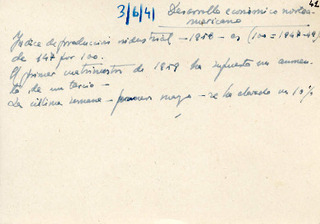 42
3/6/41 Desarrollo económico norteamericano
Indice de producción industrial - 1959 - es (100 = 1947-49)
de 147 por 100.
El primer cuatrimestre de 1959 ha supuesto un aumen-
to de un tercio -
La última semana - primero mayo - se ha elevado un 10%